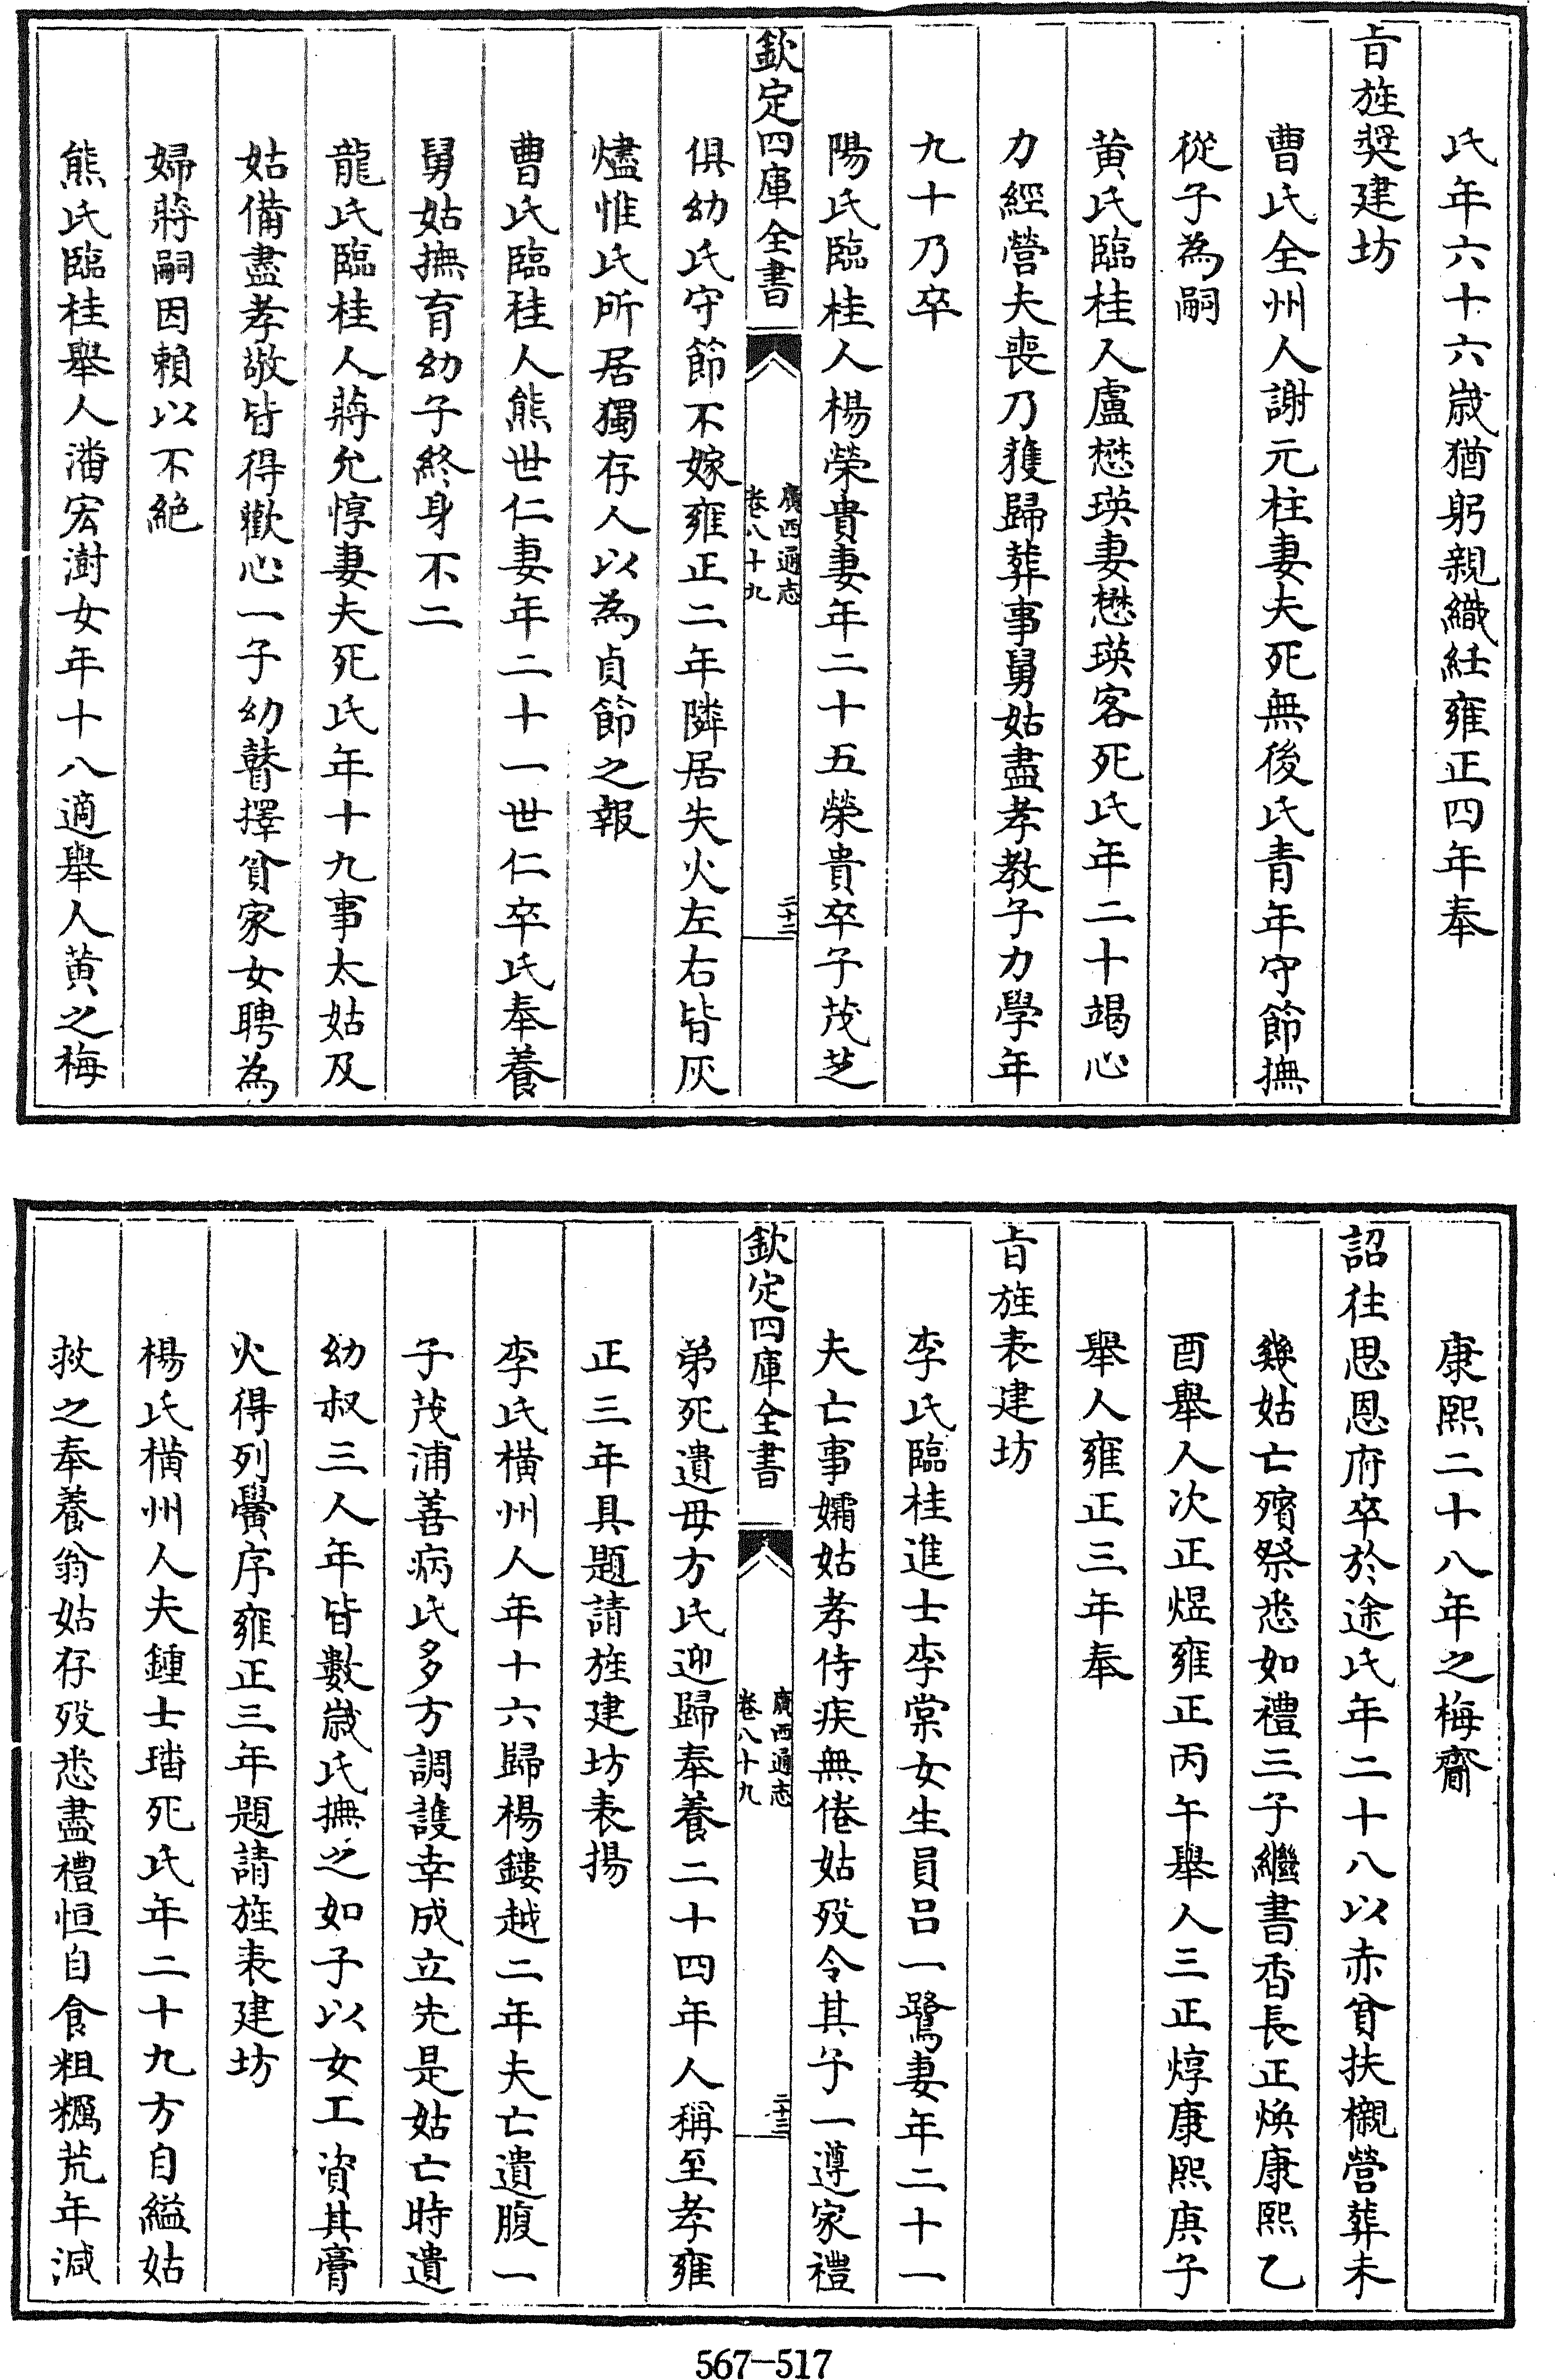 氏年六十六歲猶躬親織紝雍正四年奉
旨旌奬建坊
曹氏全州人謝元柱妻夫死無後氏青年守節撫
從子為嗣
黃氏臨桂人盧懋瑛妻懋瑛客死氏年二十竭心
力經營夫喪乃獲歸葬事舅姑盡孝教子力學年
九十乃卒
陽氏臨桂人楊榮貴妻年二十五榮貴卒子茂芝
欽定四庫全書
廣西通志
卷八十九
二十二
俱幼氏守節不嫁雍正二年隣居失火左右皆灰
燼惟氏所居獨存人以為貞節之報
曹氏臨桂人熊世仁妻年二十一世仁卒氏奉養
舅姑撫育幼子終身不二
龍氏臨桂人蔣允惇妻夫死氏年十九事太姑及
姑備盡孝敬皆得歡心一子幼瞽擇貧家女聘為
婦蔣嗣因賴以不絶
熊氏臨桂舉人潘宏澍女年十八適舉人黃之梅
康熙二十八年之梅齎
詔往思恩府卒於途氏年二十八以赤貧扶櫬營葬未
幾姑亡殯祭悉如禮三子繼書香長正煥康熙乙
酉舉人次正煜雍正丙午舉人三正焞康熙庚子
舉人雍正三年奉
旨旌表建坊
李氏臨桂進士李棠女生員呂一鷺妻年二十一
夫亡事孀姑孝侍疾無倦姑歿令其子一遵家禮
欽定四庫全書
廣西通志
卷八十九
二十三
弟死遺母方氏迎歸奉養二十四年人稱至孝雍
正三年具題請旌建坊表揚
李氏橫州人年十六歸楊鏤越二年夫亡遺腹一
子茂浦善病氏多方調護幸成立先是姑亡時遺
幼叔三人年皆數歲氏撫之如子以女工資其膏
火得列黌序雍正三年題請旌表建坊
楊氏橫州人夫鍾士璠死氏年二十九方自縊姑
救之奉養翁姑存歿悉盡禮恒自食粗糲荒年減
567-517